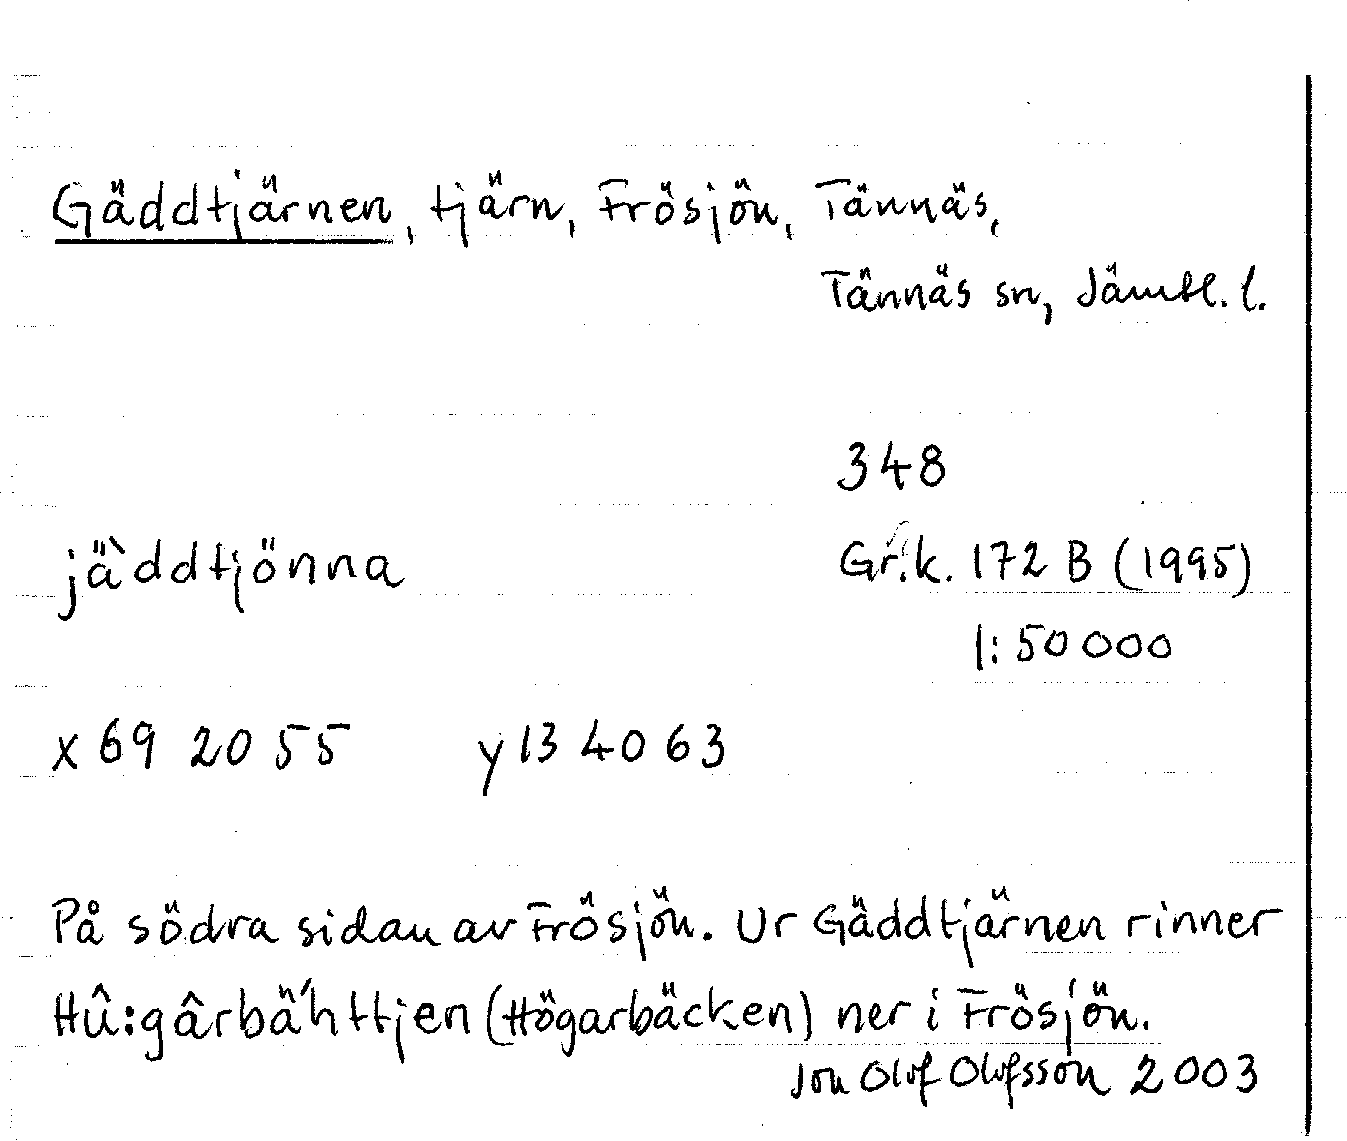 Gäddtjärnen, tjärn, Frösjön, Tännäs,
Tännäs sn, Jämtl. l.
348
jä̀ddtjönna
Gr.k. 172 B (1995)
1:50 000
x 69 20 55 y 13 40 63
På södra sidan av Frösjön. Ur Gäddtjärnen rinner
Hû:gârbä́httjen (Högarbäcken) ner i Frösjön.
Jon Olof Olofsson 2003